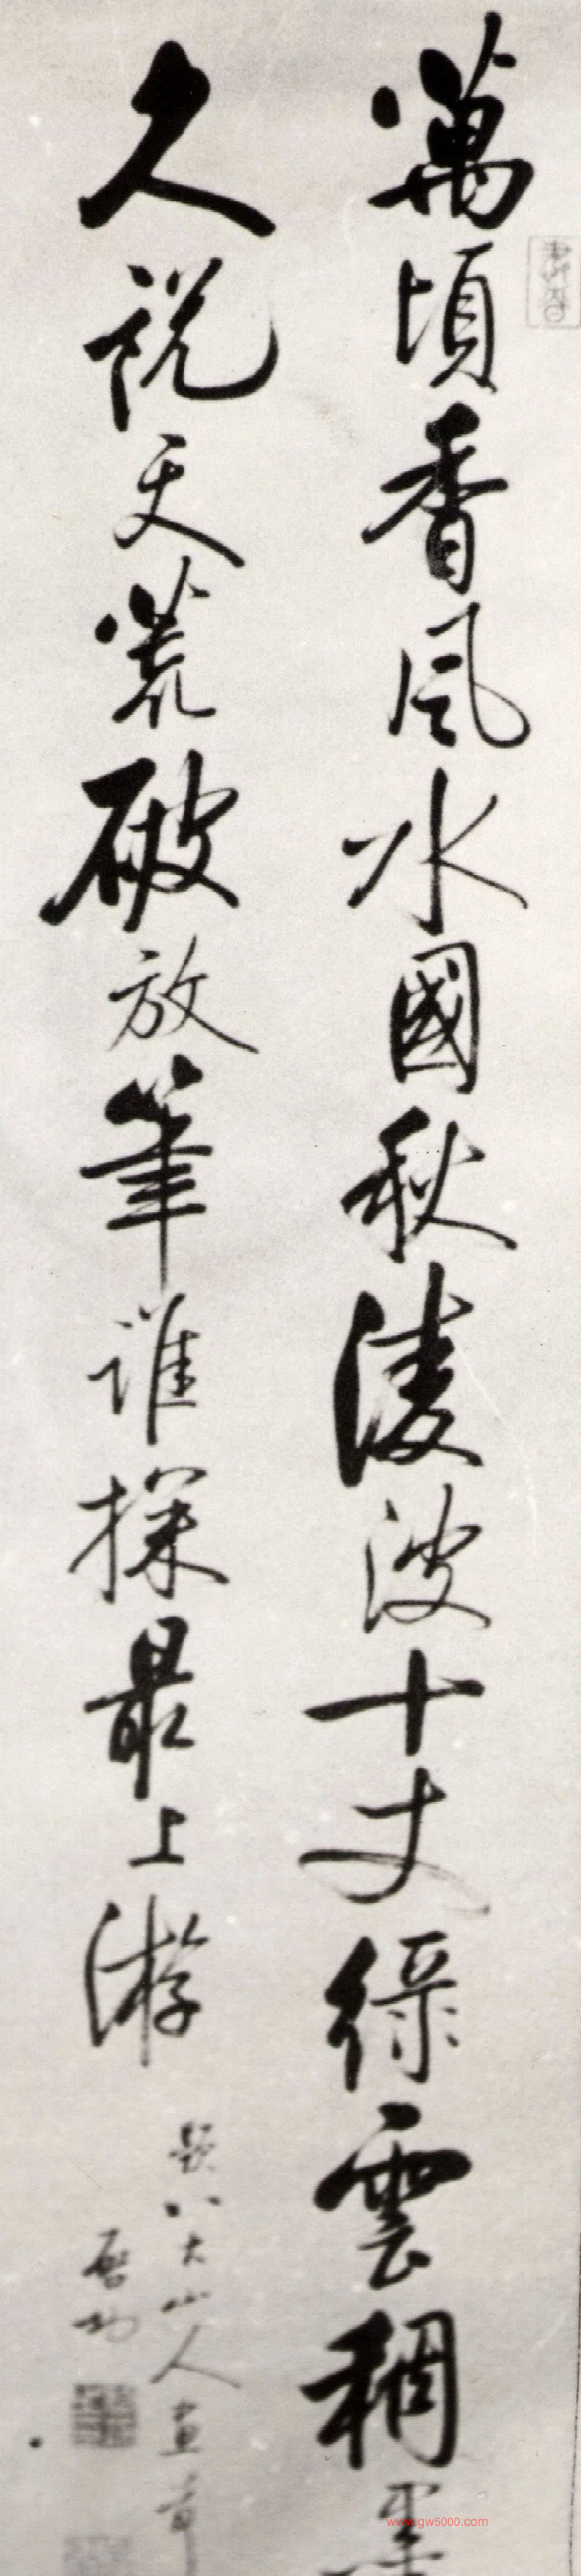 萬頃香風水國秋淩波十丈綠雲稠墨
久說天荒破放筆誰探最上游
題八大山人畫
啟功
www.gw5000.com